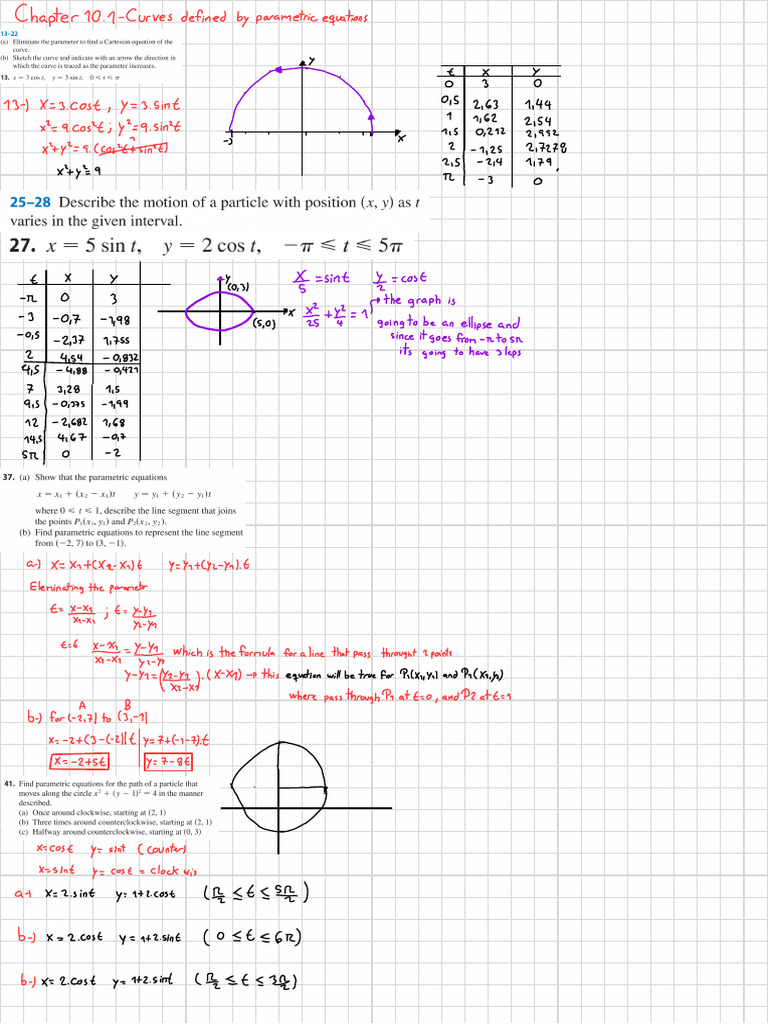 Chapter 10.1-Curves defined by parametric equations
13–22
(a) Eliminate the parameter to find a Cartesian equation of the
curve.
(b) Sketch the curve and indicate with an arrow the direction in
which the curve is traced as the parameter increases.
13. x = 3 cos t, y = 3 sin t, 0 ⩽ t ⩽ π
13-) x=3.cost , y=3.sint
x²=9.cos²t; y²=9.sin²t
x²+y²=9.(cos²t+sin²t)
x²+y²=9
y
-3
x
t x y
0 3 0
0,5 2,63 1,44
1 1,62 2,54
1,5 0,212 2,992
2 -1,25 2,7278
2,5 -2,4 1,79
π -3 0
25–28 Describe the motion of a particle with position (x, y) as t
varies in the given interval.
27. x = 5 sin t, y = 2 cos t, −π ⩽ t ⩽ 5π
t x y
-π 0 3
-3 -0,7 -1,98
-0,5 -2,37 1,755
2 4,54 -0,832
4,5 -4,88 -0,421
7 3,28 1,5
9,5 -0,375 -1,99
12 -2,682 1,68
14,5 4,67 -0,7
5π 0 -2
y
(0,3)
x
(5,0)
x/5 = sint y/2 = cost
x²/25 + y²/4 = 1 → the graph is
going to be an ellipse and
since it goes from -π to 5π
its going to have 3 laps
37. (a) Show that the parametric equations
x = x₁ + (x₂ − x₁)t y = y₁ + (y₂ − y₁)t
where 0 ⩽ t ⩽ 1, describe the line segment that joins
the points P₁(x₁, y₁) and P₂(x₂, y₂).
(b) Find parametric equations to represent the line segment
from (−2, 7) to (3, −1).
a-) x= x1+(x2-x1)t y=y1+(y2-y1).t
Eleminating the parametr
t= x-x1/x2-x1 ; t= y-y1/y2-y1
t=t x-x1/x2-x1 = y-y1/y2-y1 which is the formula for a line that pass throught 2 points
y-y1=(y2-y1/x2-x1).(x-x1) → this equation will be true for P1(x1,y1) and P2(x2,y2)
where pass through P1 at t=0, and P2 at t=1
A B
b-) for (-2,7) to (3,-1)
x=-2+(3-(-2))t y=7+(-1-7).t
x=-2+5t y=7-8t
41. Find parametric equations for the path of a particle that
moves along the circle x² + (y − 1)² = 4 in the manner
described.
(a) Once around clockwise, starting at (2, 1)
(b) Three times around counterclockwise, starting at (2, 1)
(c) Halfway around counterclockwise, starting at (0, 3)
x=cost y= sint (counter)
x=sint y= cost = clock wis
a-) x=2.sint y=1+2.cost (π/2 ≤ t ≤ 5π/2)
b-) x=2.cost y=1+2.sint (0 ≤ t ≤ 6π)
b-) x=2.cost y=1+2.sint (π/2 ≤ t ≤ 3π/2)